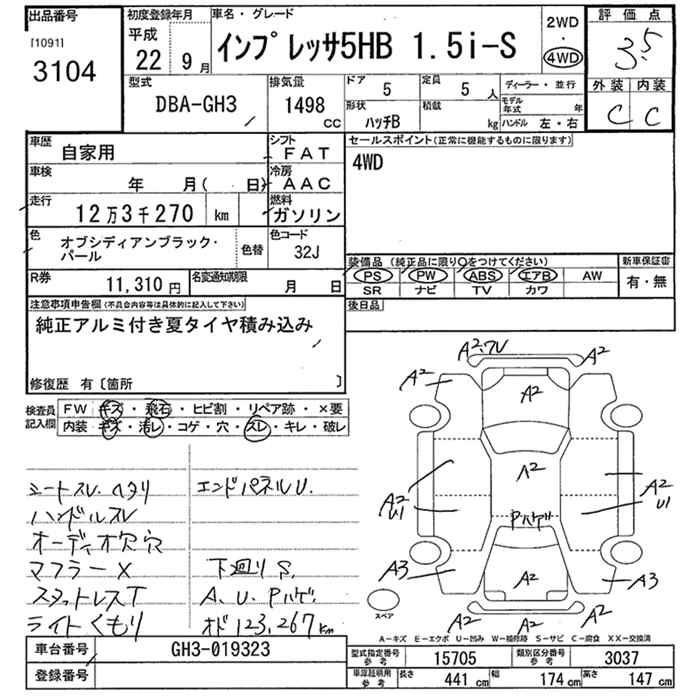 出品番号
[1091]
3104
初度登録年月
平成
22 9月
車名・グレード
インプレッサ5HB 1.5i-S
2WD
・
4WD
評価点
3.5
外装 内装
C C
型式
DBA-GH3
排気量
1498
CC
ドア
5
定員
5 人
形状
ハッチB
積載
kg
ディーラー・並行
モデル年式 年
ハンドル 左・右
車歴
自家用
シフト
FAT
車検
年 月( 日)
冷房
AAC
走行
12万3千270 km
燃料
ガソリン
色
オブシディアンブラック・
パール
色替
色コード
32J
R券
11,310円
名変通知期限
月 日
セールスポイント(正常に機能するものに限ります)
4WD
装備品 (純正品に限り○をつけてください)
PS PW ABS エアB AW
SR ナビ TV カワ
新車保証書
有・無
後日品
注意事項申告欄(不具合内容等は具体的に記入して下さい)
純正アルミ付き夏タイヤ積み込み
修復歴 有〔箇所 〕
検査員
記入欄
FW キズ・飛石・ヒビ割・リペア跡・×要
内装 キズ・汚レ・コゲ・穴・スレ・キレ・破レ
シートスレ.ヘタリ
エンドパネルU.
ハンドルスレ
オーディオ欠穴
マフラーX
下廻りS.
スタットレスT
A.U.Pハゲ.
ライトくもり
オド123,267km
A2.ワレ
A2
A2
A2
A2
A2
A2
U1
A2
U1
Pハゲ
A3
A2
A3
A2
スペア
A-キズ E-エクボ U-凹み W-補修跡 S-サビ C-腐食 XX-交換済
車台番号
GH3-019323
登録番号
型式指定番号
参考
15705
類別区分番号
参考
3037
車庫証明用
参考
長さ
441 cm
幅
174 cm
高さ
147 cm